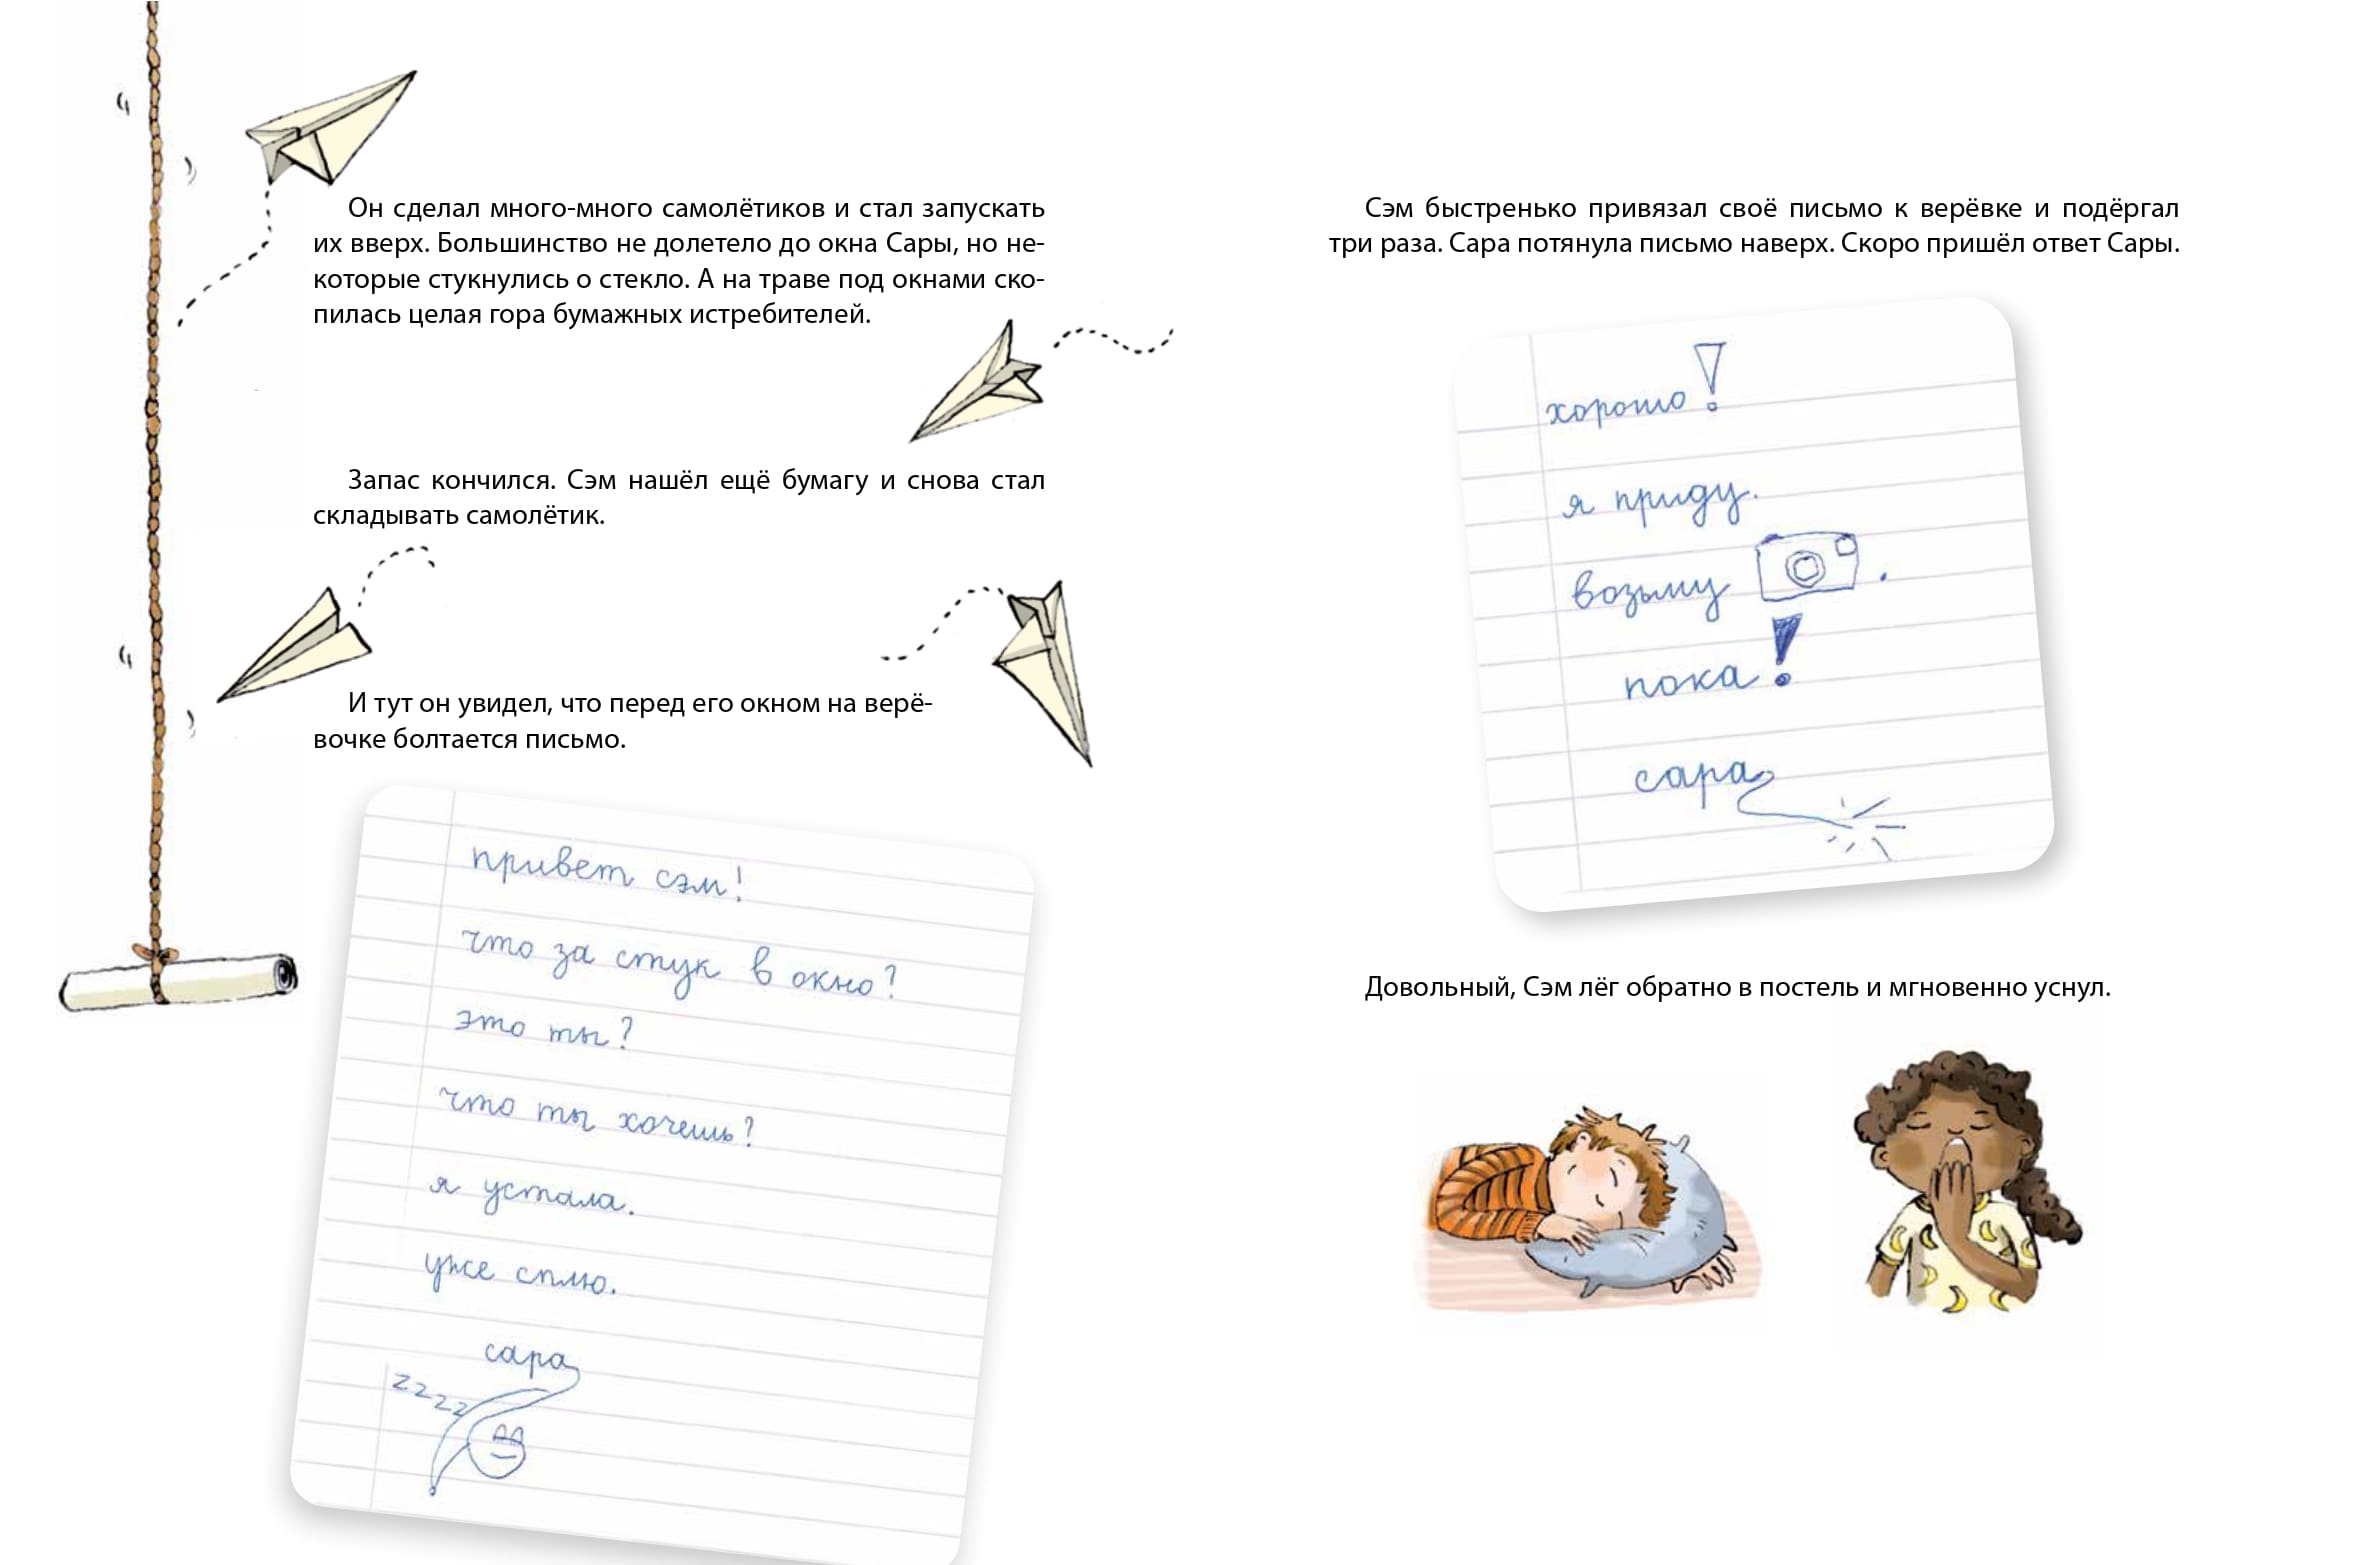 Он сделал много-много самолётиков и стал запускать
их вверх. Большинство не долетело до окна Сары, но не-
которые стукнулись о стекло. А на траве под окнами ско-
пилась целая гора бумажных истребителей.
Запас кончился. Сэм нашёл ещё бумагу и снова стал
складывать самолётик.
И тут он увидел, что перед его окном на верё-
вочке болтается письмо.
привет сэм!
что за стук в окно?
это ты?
что ты хочешь?
я устала.
уже сплю.
сара
zzzz
Сэм быстренько привязал своё письмо к верёвке и подёргал
три раза. Сара потянула письмо наверх. Скоро пришёл ответ Сары.
хорошо!
я приду.
возьму .
пока!
сара
Довольный, Сэм лёг обратно в постель и мгновенно уснул.